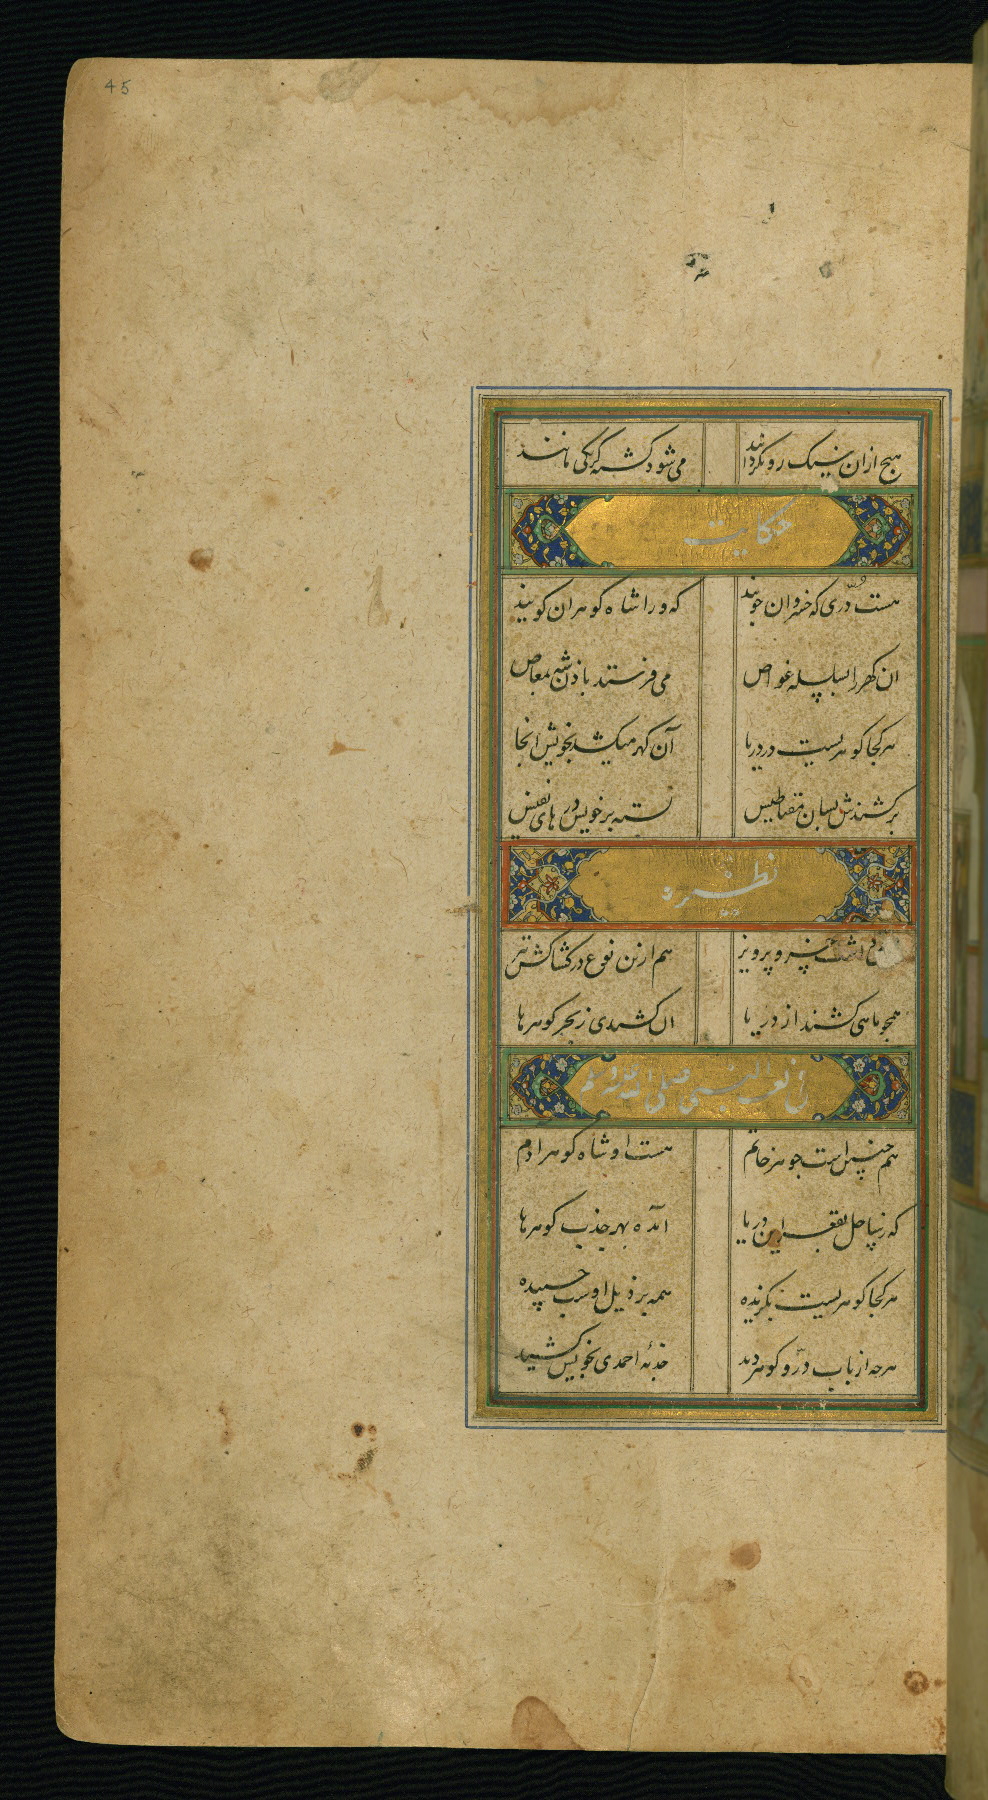 45
هیچ ازان نیک رو نگردانند می شود کشته گرنگی مانند
حکایت
هست دُرّی که خسروان جویند که ورا شاه گوهران گویند
ان گهر را بسلسله غواص می فرستد باذن شه بمغاص
هر کجا گوهریست در دریا آن گهر میکشد بخویش انجا
برکشندش بسان مقناطیس بسته بر خویش درهای نفیس
نظیره
داشت خسرو پرویز هم ازین نوع در کشاکش نیز
همچو ماهی کشند از دریا ان کشیدی ز بحر گوهرها
فی نعت النبی صلی الله علیه وسلم
هم چنین است جوهر خاتم هست او شاه گوهر ادم
که ز ساحل بقعر این دریا امده بهر جذب گوهرها
هر کجا گوهریست بگزیده همه بر ذیل اوست چسپیده
هر چه از باب درّ و گوهر دید جذبهٔ احمدی بخویش کشید